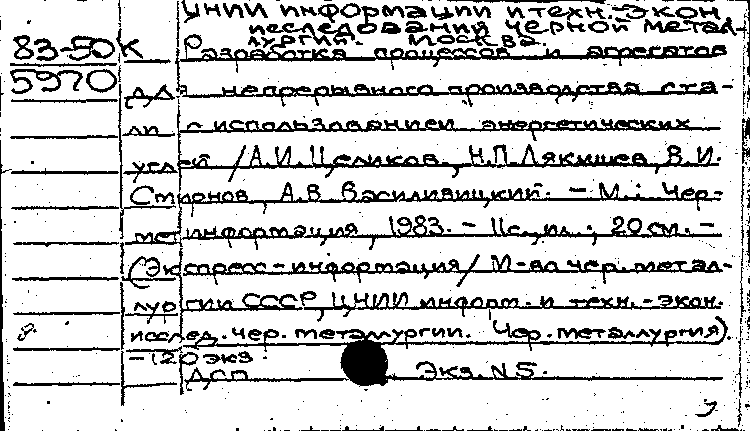 ЦНИИ информации и техн.-экон
исследований черной метал-
лургии. Москва.
83-50К
5970
Разработка процессов и агрегатов
для непрерывного производства ста-
ли с использованием энергетических
/А.И. Целиков, Н.П. Лякишев, В.И.
Смирнов, А.В. Василивицкий. - М.: Чер-
метинформация, 1983. - 11с., ил.; 20 см. -
(Экспресс-информация/ М-во чер. метал-
лургии СССР, ЦНИИ информ. и техн.-экон.
исслед. чер. металлургии. Чер. металлургия).
-120 экз
ДСП Экз. N5.